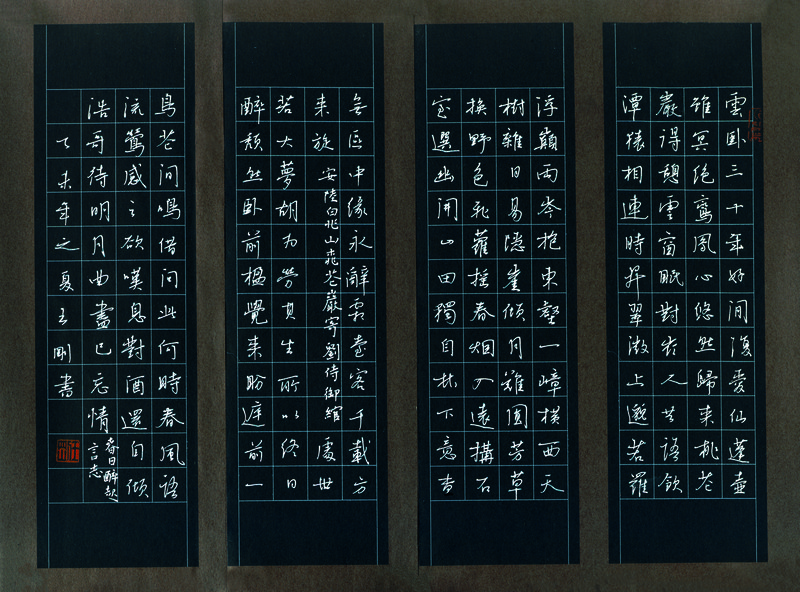 雲卧三十年好閒復愛仙蓬壺
雖冥絶鸞鳳心悠然歸來桃花
巖得憩雲窗眠對嶺人共語飲
潭猿相連時昇翠微上邈若羅
浮巔兩岑抱東壑一嶂橫西天
樹雜日易隱崖傾月難圓芳草
換野色飛蘿摇春烟入遠搆石
室選幽開山田獨自林下意杳
無區中緣永辭霜臺客千載方
來旋 安陸白兆山桃花巖寄劉侍御綰 處世
若大夢胡为勞其生所以終日
醉頹然卧前楹覺來盼庭前一
鳥花間鳴借問此何時春風語
流鶯感之欲嘆息對酒還自傾
浩哥待明月曲盡已忘情 春日醉起
言志
乙未年之夏王剛書